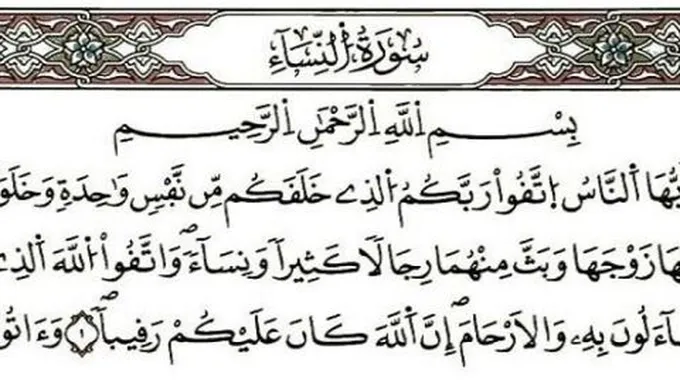 سُورَةُ النِّسَآءِ
بِسْمِ اللَّهِ الرَّحْمَٰنِ الرَّحِيمِ
يُّهَا النَّاسُ اتَّقُواْ رَبَّكُمُ الذِے خَلَقَكُم مِّن نَّفْسٖ وَٰحِدَةٖ وَخَلَقَ
هَا زَوْجَهَا وَبَثَّ مِنْهُمَا رِجَالاٗ كَثِيراٗ وَنِسَآءٗۖ وَاتَّقُواْ اللَّهَ الذِے
آءَلُونَ بِهِۦ وَالَارْحَامَۖ إِنَّ اللَّهَ كَانَ عَلَيْكُمْ رَقِيباٗۖ ١ وَءَاتُو